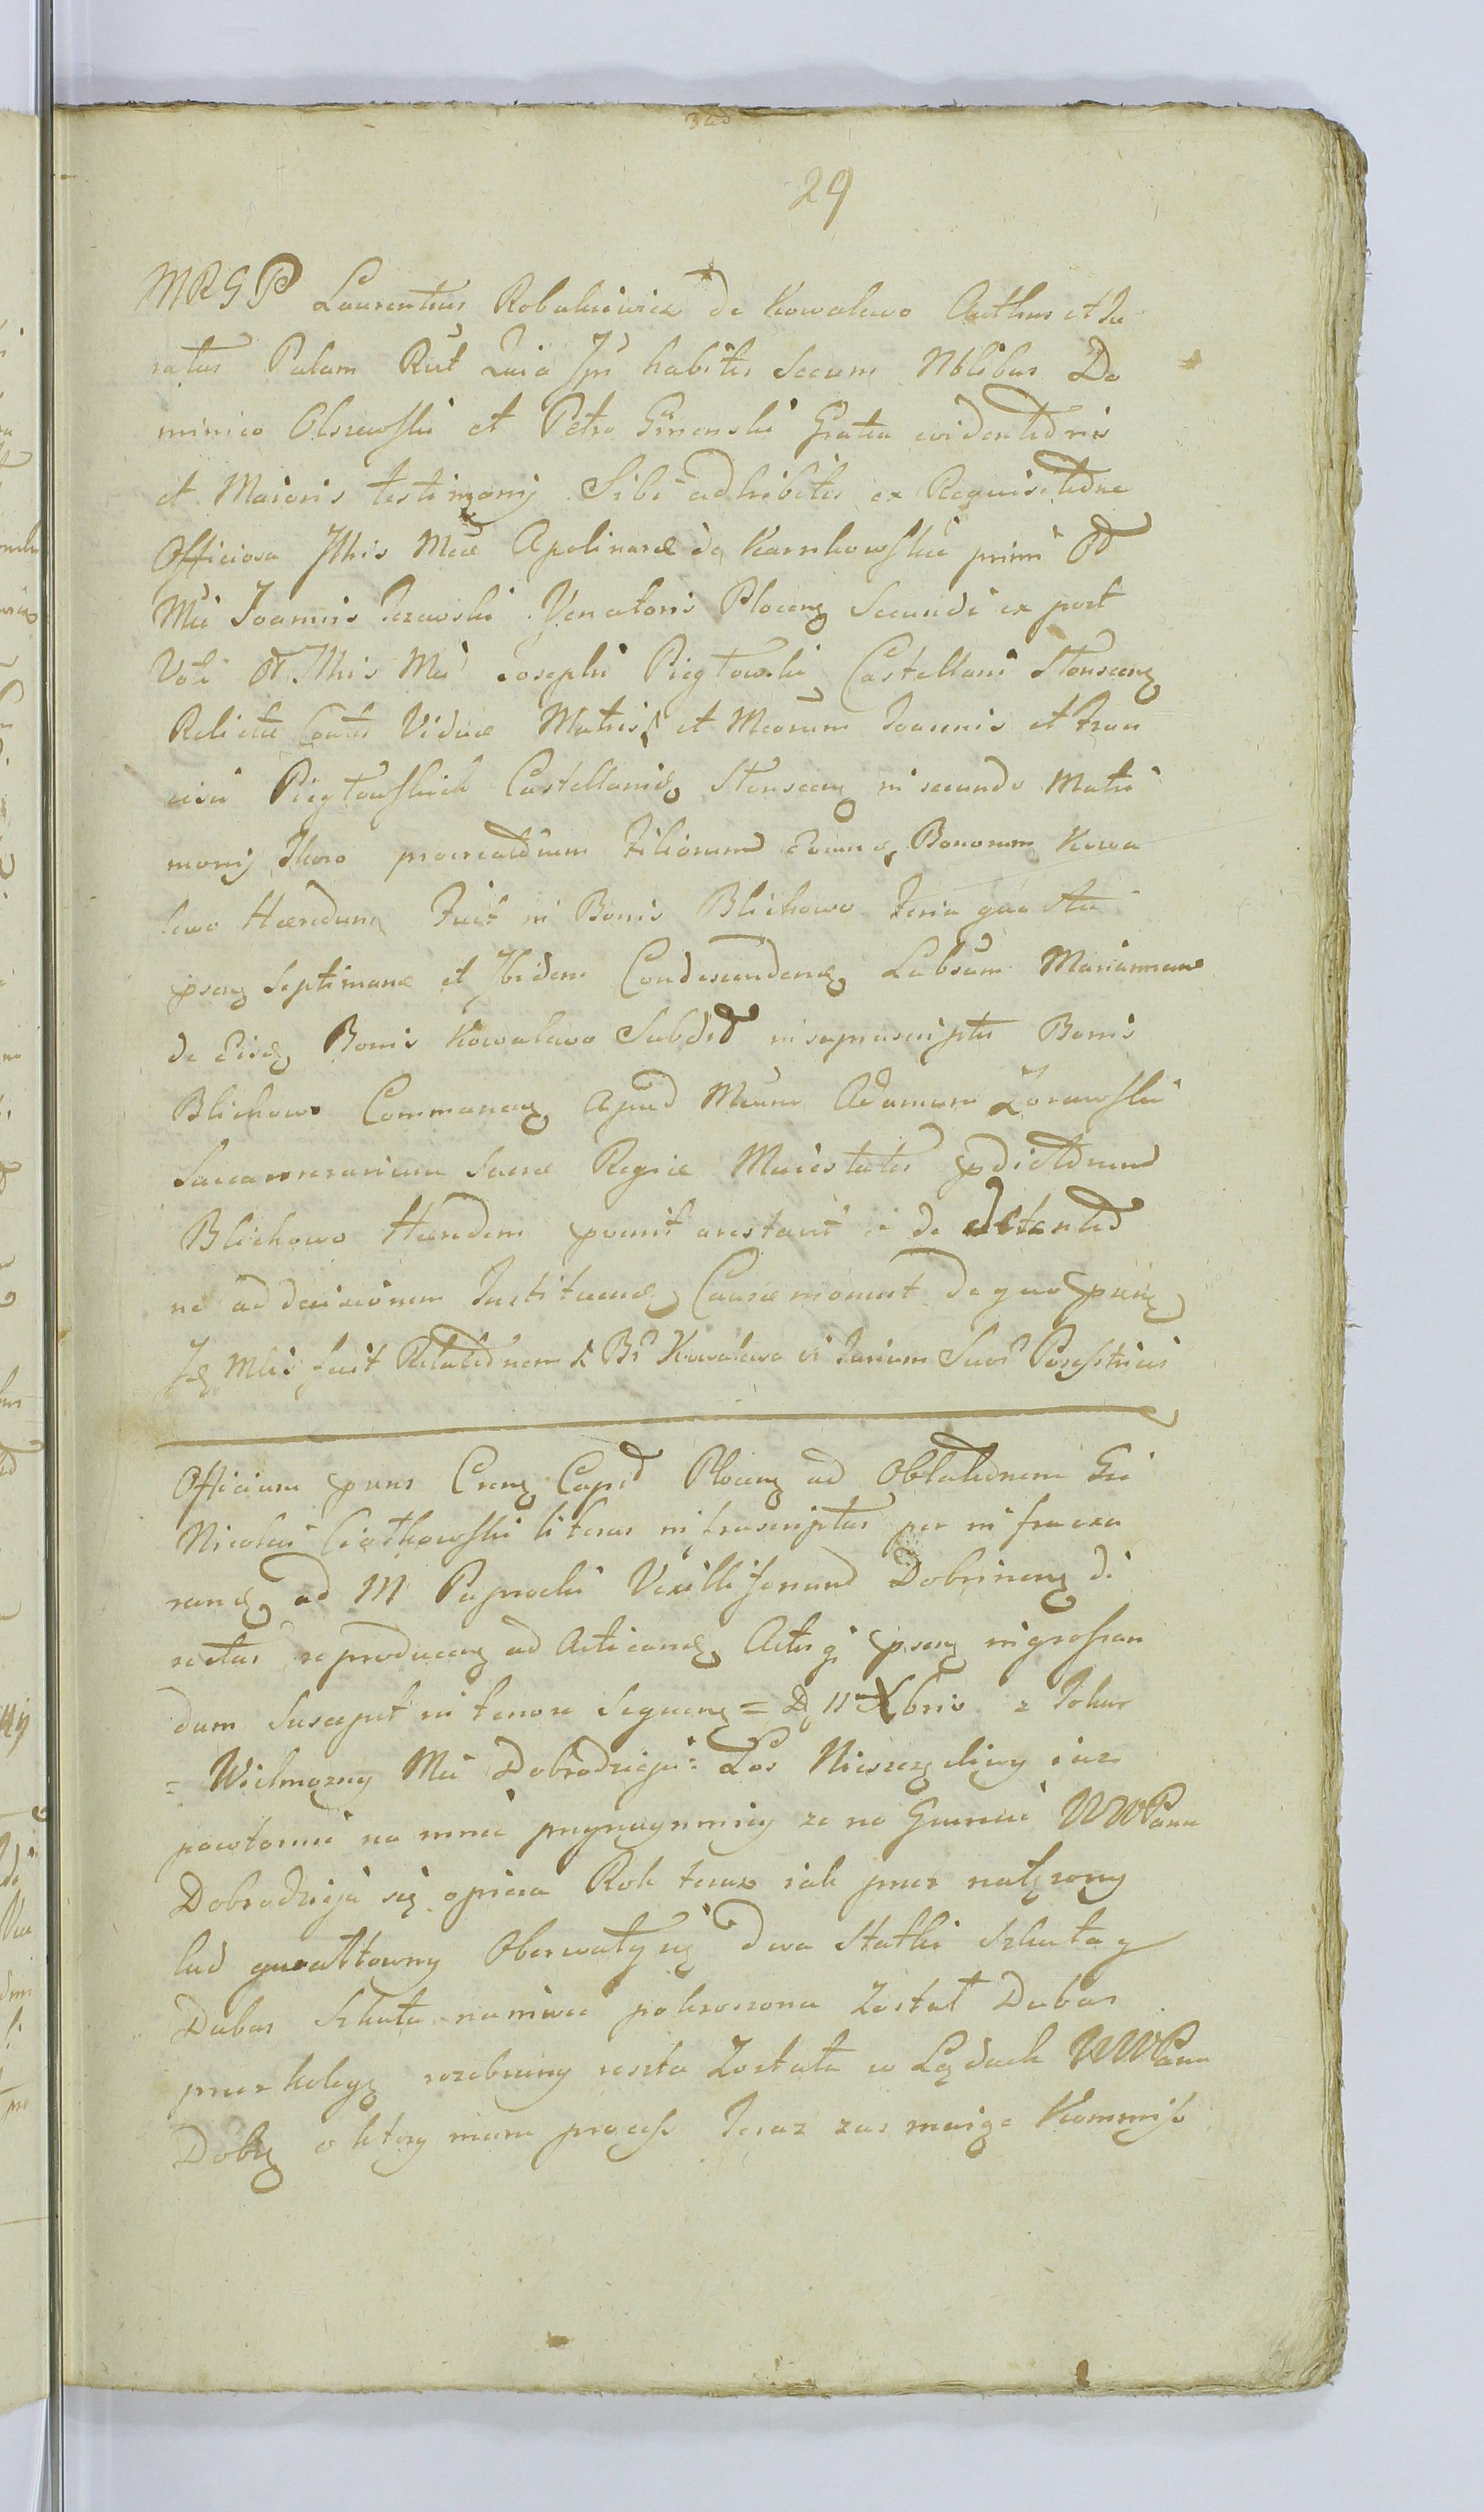 29
MRGP Laurentius Robakiewicz de Kowalewo Authus et Ju
ratus Palam Rũt Quia Ips habitis Secum Nblibus Do
minico Olszewski et Petro Gmenski Gratia evidentionis
et Maioris testimonij Sibi adhibitis ex Requisitione
Officiosa Illris Mcae Apolinarae de Karnkowskie primi Od
Mci Joannis Jezewski Venatoris Plocenz Secundi ex post
Voti Od Illris Mci Josephi Pięgtowski Castellani Konseenz
Relictae Viduae Matris et Mcorum Joannis et Fran
cisci Pięgtowskich Castellanidz in secundo Matri
monij Thoro procreatorum Filiorum Bonorum Kowa
lewo Haeredum Fuit in Bonis Blichowo Feria quarta
psenz Septimanae et Ibidem Condescendenz Labsum Mariannam
de Eisdz Bonis Kowalewo Subdit in suprascriptis Bonis
Blichowo Commanenz Apud Mcum Adamum Zorawski
Succamerarium Sacrae Regiae Maiestatis pdictorum
Blichowo Haeredem pcunit arestavit i de detentio
ne ad decisionem Instituendz Causae monuit De quo psenz
fecit Relationem Kowalewo Jurium Suor
Officium psens Crenz Capit Plocenz ad Oblationem Gsi
Nicolai literas infrascriptas per infra
randz ad M Paprocki Vexilliferum Dobrinenz di
rectas reproducenz ad Acticandz Actisq psenz ingrossan
dum Suscepit in tenore Sequenz = D 11 Xbris z Tokar
= Wielmozny Mci Dobrodzieju = Los Nieszczęsliwy iuz
powtornie na mnie przynaymniey ze na Gruncie WWPana
Dobrodzieja się opiera Rok teraz iak przez natęzony
lud gwałtowny Oberwały się dwa Statki Szkuta y
Dubas Szkuta na niwec pokruszona Został Dubas
przez kolegę rozebrany reszta Została w Lądach WWPana
Dobz o ktory mam process Teraz zas maige Kommiss